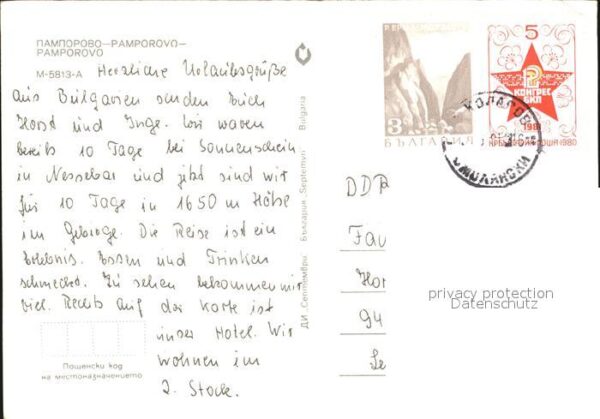 ПАМПОРОВО–PAMPOROVO–
PAMPOROVO
М-5813-А
Herzliche Urlaubsgrüße
aus Bulgarien senden Euch
Horst und Inge. Wir waren
bereits 10 Tage bei Sonnenschein
in Nessebar und jetzt sind wir
für 10 Tage in 1650 m Höhe
im Gebirge. Die Reise ist ein
Erlebnis. Essen und Trinken
schmeckt. Zu sehen bekommen wir
viel. Rechts auf der Karte ist
unser Hotel. Wir
wohnen im
2. Stock.
Пощенски код
на местоназначението
ДИ „Септември“ България „Septemvri“ Bulgaria
3 БЪЛГАРИЯ
5
КОНГРЕС
БКП
1981
1980
СМОЛЯНСКИ
DDR
Fau
Hor
94
Se
privacy protection
Datenschutz